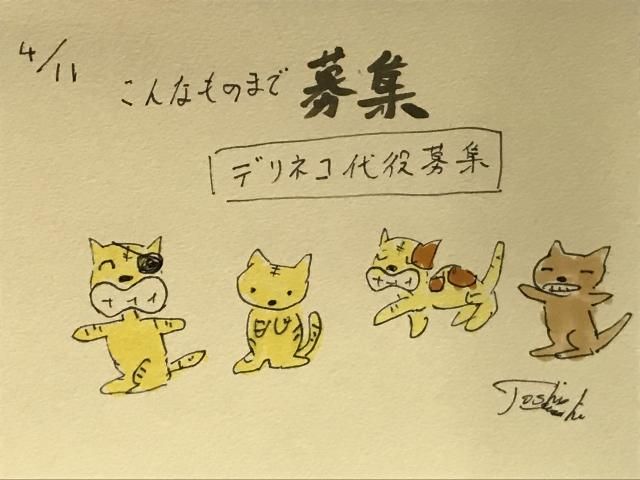 4/11
こんなものまで募集
デリネコ代役募集